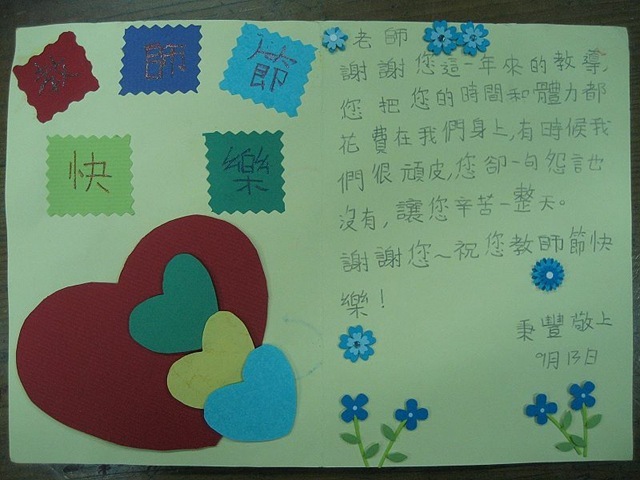 教師節
快樂
老師
謝謝您這一年來的教導,
您把您的時間和體力都
花費在我們身上,有時候我
們很頑皮,您卻一句怨言也
沒有,讓您辛苦一整天。
謝謝您~祝您教師節快
樂!
秉豐敬上
9月13日